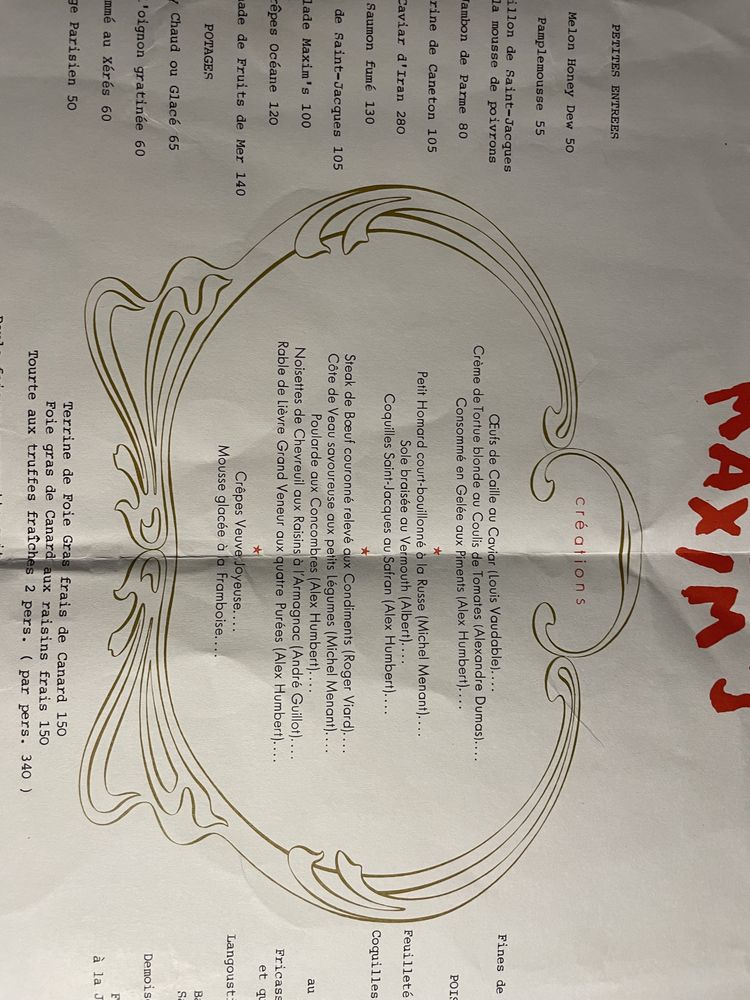 MAXIM'
PETITES ENTREES
Melon Honey Dew 50
Pamplemousse 55
illon de Saint-Jacques
la mousse de poivrons
Jambon de Parme 80
rine de Caneton 105
Caviar d'Iran 280
Saumon fumé 130
de Saint-Jacques 105
lade Maxim's 100
rêpes Océane 120
ade de Fruits de Mer 140
POTAGES
y Chaud ou Glacé 65
l'oignon gratinée 60
mmé au Xérés 60
ge Parisien 50
créations
Œufs de Caille au Caviar (Louis Vaudable)....
Crème de Tortue blonde au Coulis de Tomates (Alexandre Dumas)....
Consommé en Gelée aux Piments (Alex Humbert)....
Petit Homard court-bouillonné à la Russe (Michel Menant)....
Sole braisée au Vermouth (Albert)....
Coquilles Saint-Jacques au Safran (Alex Humbert)....
Steak de Bœuf couronné relevé aux Condiments (Roger Viard)....
Côte de Veau savoureuse aux petits Légumes (Michel Menant)....
Poularde aux Concombres (Alex Humbert)....
Noisettes de Chevreuil aux Raisins à l'Armagnac (André Guillot)....
Rable de Lièvre Grand Veneur aux quatre Purées (Alex Humbert)....
Crêpes Veuve Joyeuse....
Mousse glacée à la Framboise....
Terrine de Foie Gras frais de Canard 150
Foie gras de Canard aux raisins frais 150
Tourte aux truffes fraîches 2 pers. ( par pers. 340 )
Fines de
POIS
Feuilleté
Coquilles
au
Fricass
et qu
Langoust
Ba
Sa
Demois
F
à la J